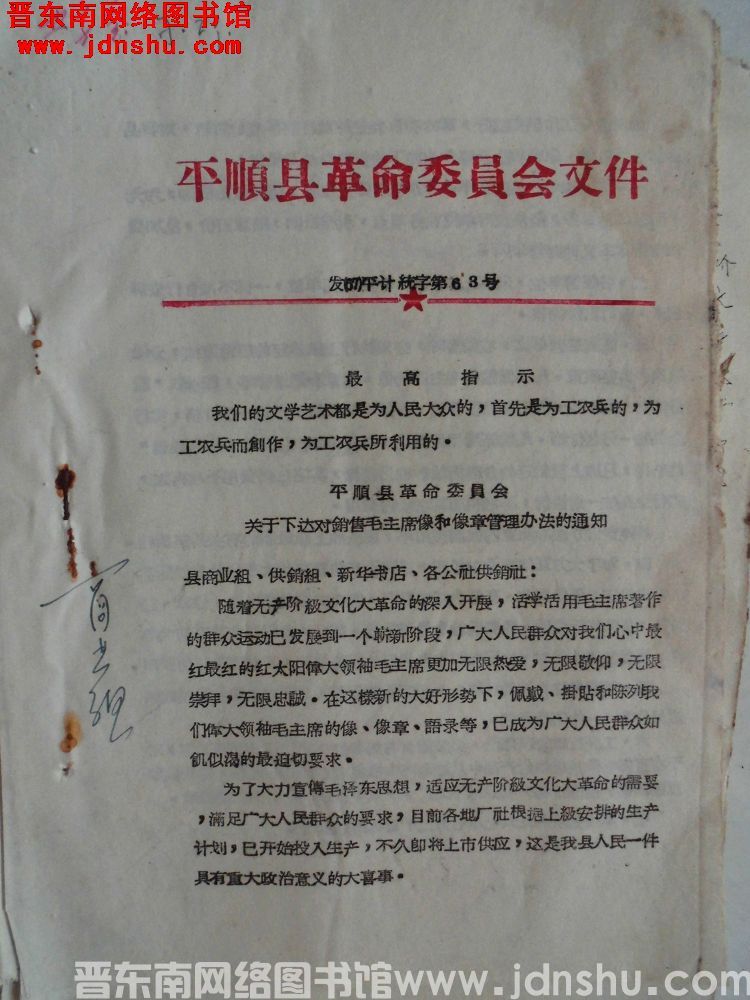 晋东南网络图书馆
www.jdnshu.com
平順县革命委員会文件
发(67)平计統字第63号
最高指示
我们的文学艺术都是为人民大众的，首先是为工农兵的，为
工农兵而創作，为工农兵所利用的。
平順县革命委員会
关于下达对銷售毛主席像和像章管理办法的通知
县商业組、供銷組、新华书店、各公社供銷社：
随着无产阶級文化大革命的深入开展，活学活用毛主席著作
的群众运动已发展到一个嶄新阶段，广大人民群众对我们心中最
红最红的红太阳偉大领袖毛主席更加无限热爱，无限敬仰，无限
崇拜，无限忠誠。在这樣新的大好形势下，佩戴、掛貼和陈列我
们偉大领袖毛主席的像、像章、語录等，已成为广大人民群众如
飢似渴的最迫切要求。
为了大力宣傳毛泽东思想，适应无产阶級文化大革命的需要
，滿足广大人民群众的要求，目前各地厂社根据上級安排的生产
计划，已开始投入生产，不久即将上市供应，这是我县人民一件
具有重大政治意义的大喜事。
晋东南网络图书馆www.jdnshu.com